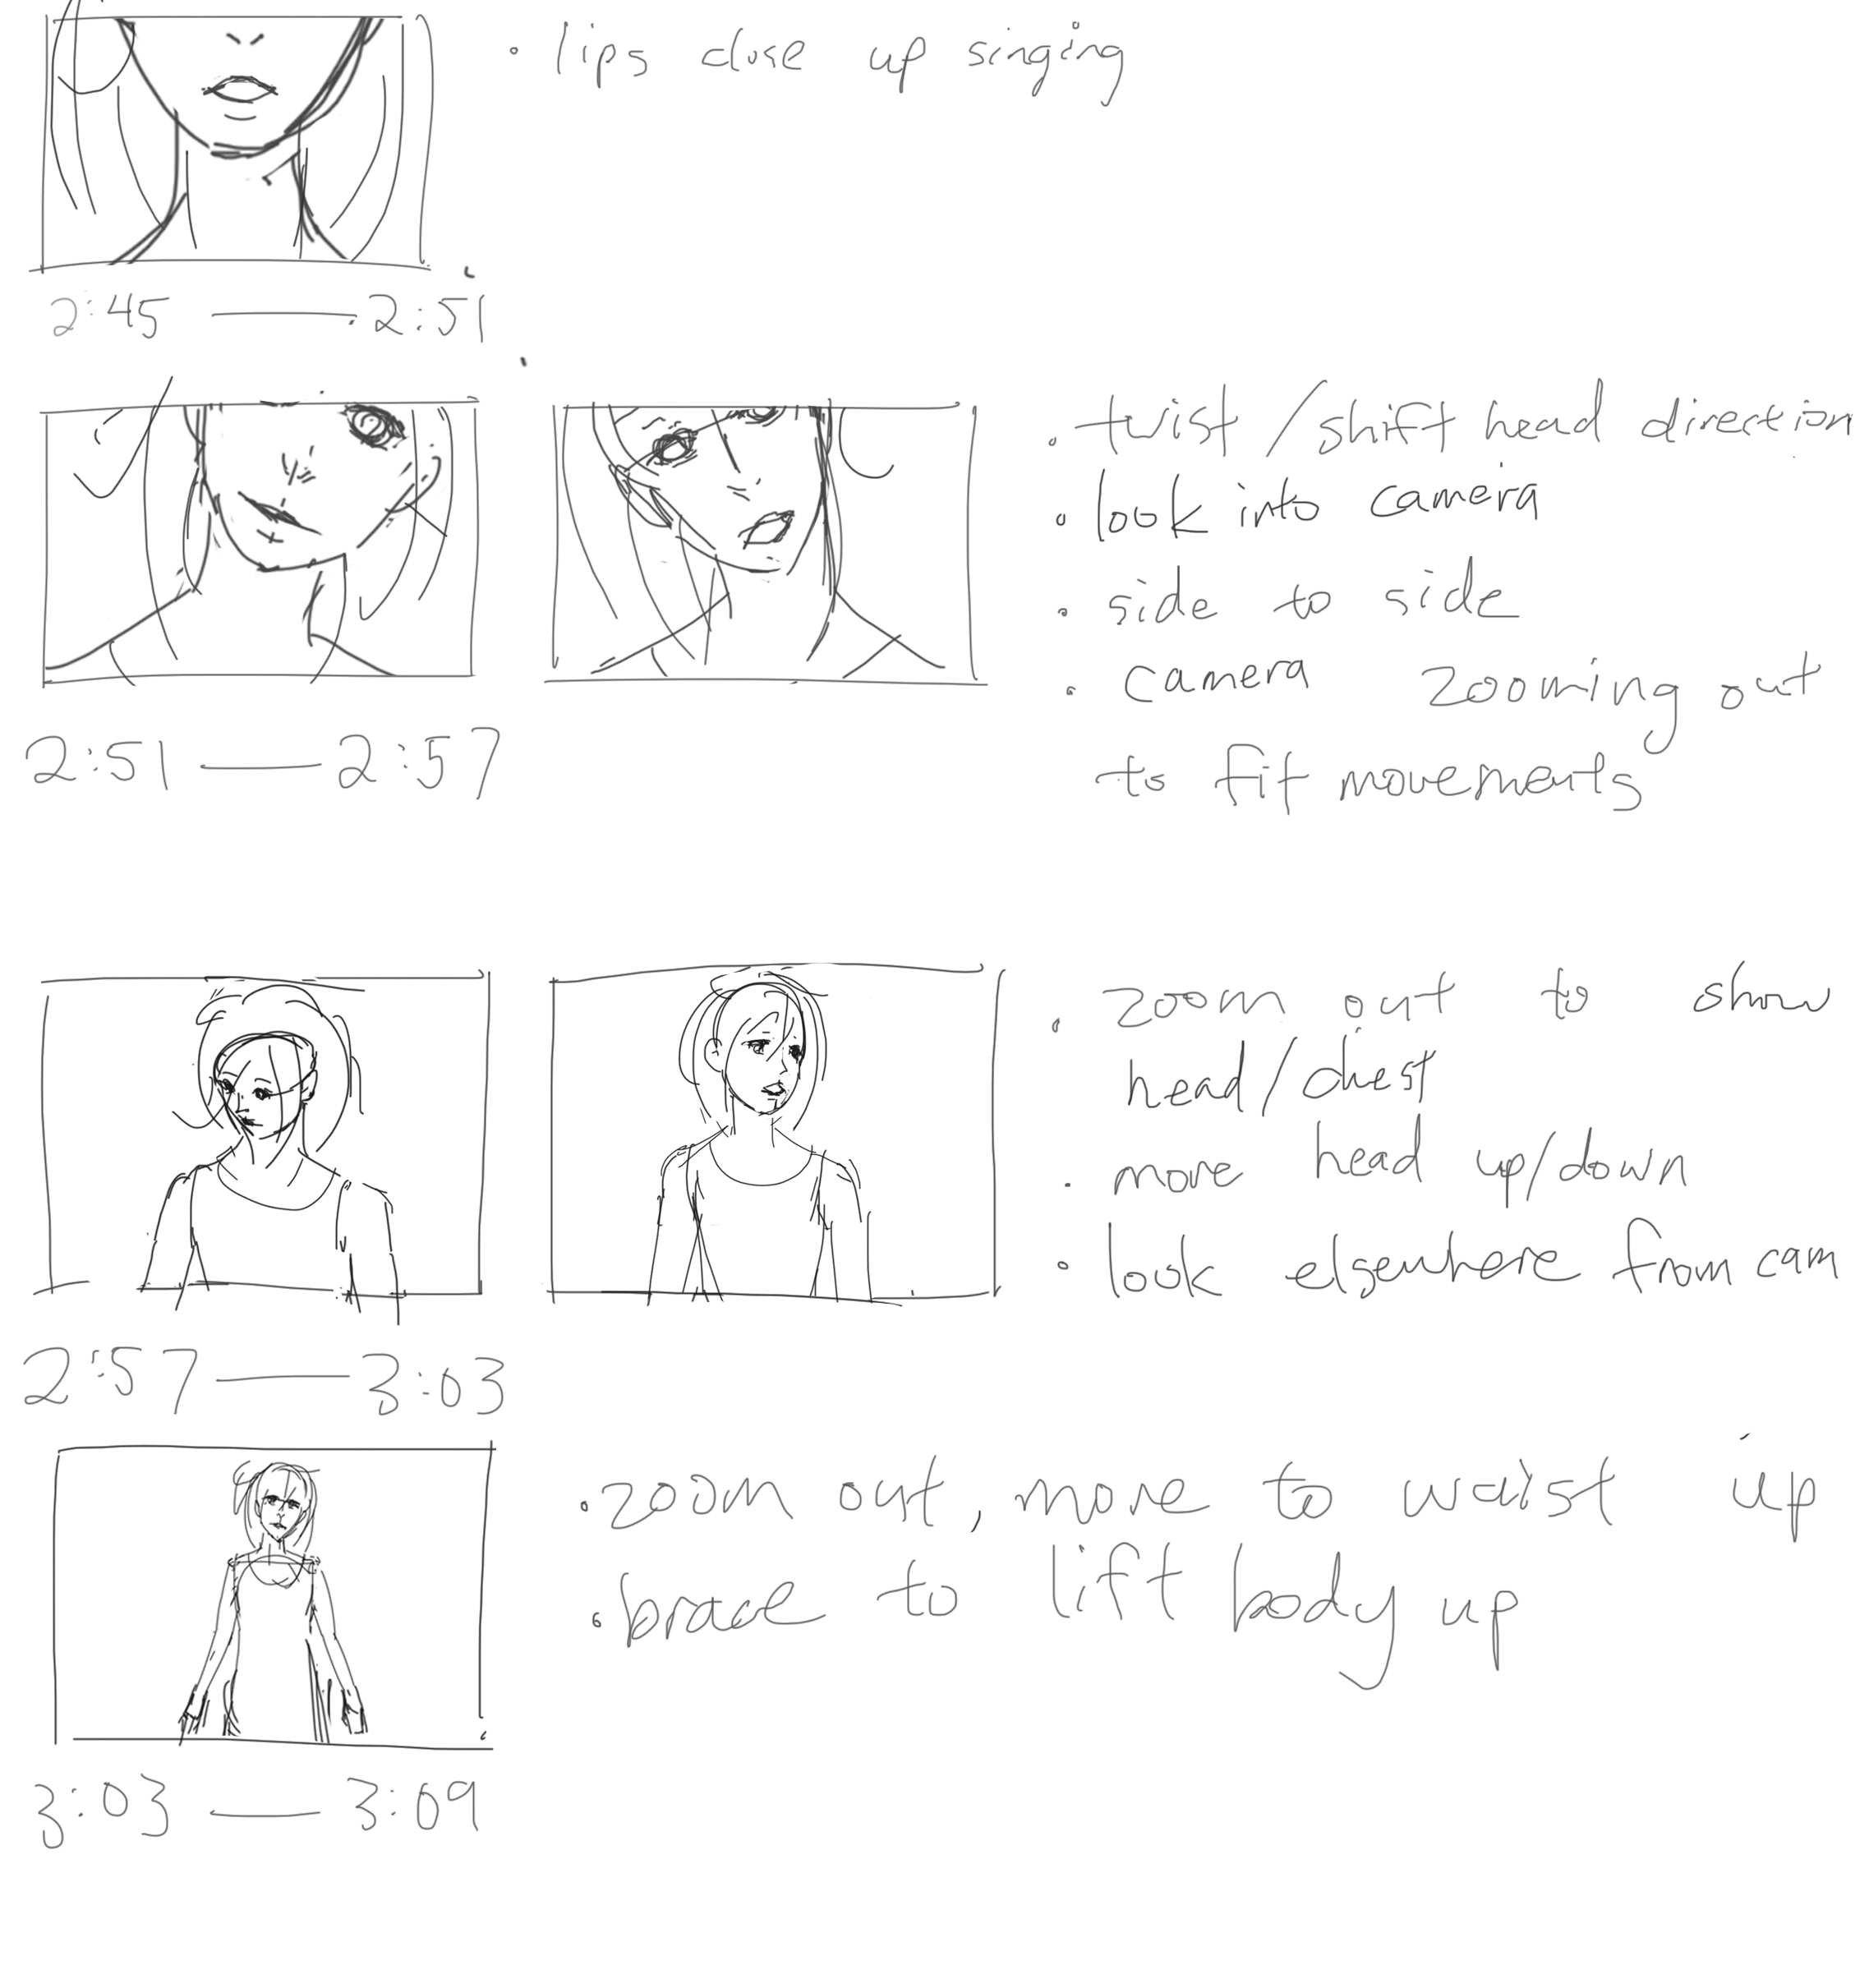 • lips close up singing
2:45 — 2:51
• twist/shift head direction
• look into camera
• side to side
• camera zooming out
to fit movements
2:51 — 2:57
• zoom out to show
head/chest
• move head up/down
• look elsewhere from cam
2:57 — 3:03
• zoom out, move to waist up
• brace to lift body up
3:03 — 3:09